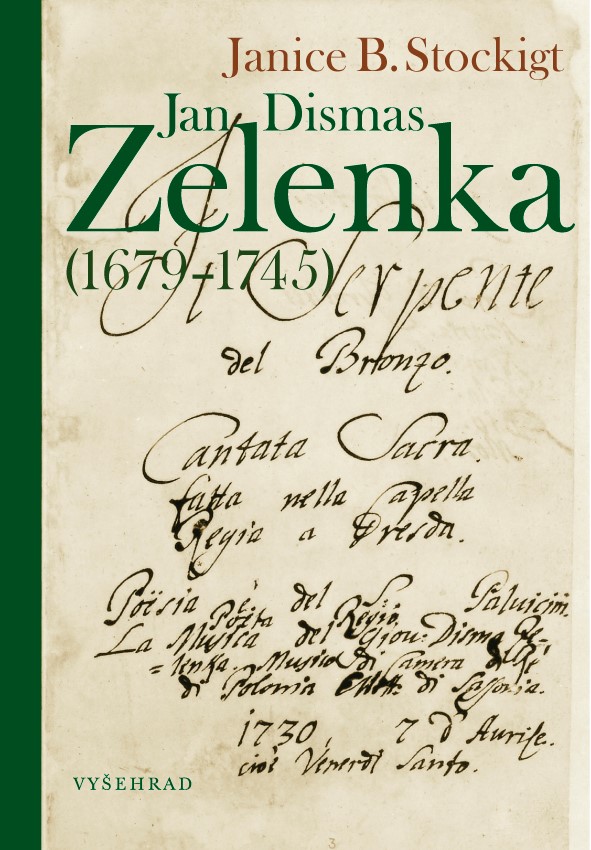 Janice B. Stockigt
Jan Dismas
Zelenka
(1679–1745)
Il Serpente
del Bronzo.
Cantata Sacra.
fatta nella Capella
Regia a Dresda.
Poësia è del S. Paluicini.
Poëta Regio.
La Musica del Giou: Disma Ze=
=lenka. Musico di Camera del Rè
di Polonia Elett: di Sassonia.
1730, 7 d'Aurile.
cioè Venerdì Santo.
VYŠEHRAD
3